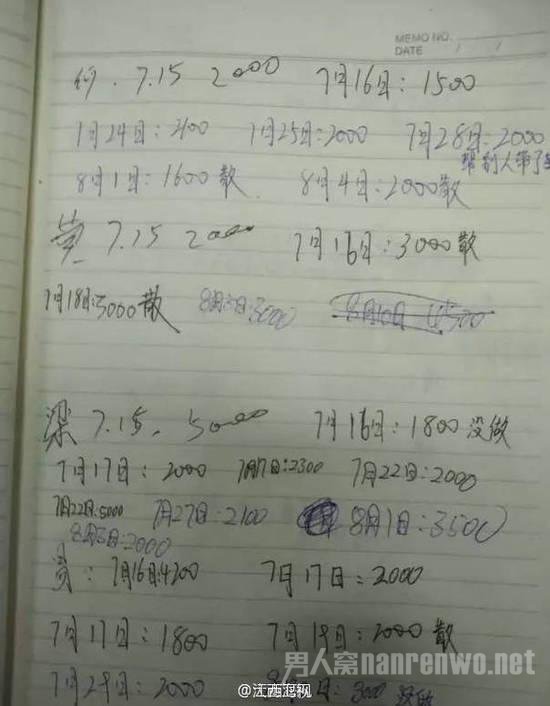 MEMO NO.
DATE / /
7.15 2000 7月16日：1500
1月24日：2100 1月25日：2000 7月28日：2000
帮别人带了
8月1日：1600散 8月4日：2000散
7.15 2000 7月16日：3000散
7月18日：3000散 8月3日：3000 8月10日 4500
梁 7.15. 5000 7月16日：1800没做
7月17日：2000 7月17日：2300 7月22日：2000
7月22日：5000 7月27日：2100 8月1日：3500
8月3日：2000
员：7月16日：4200 7月17日：2000
7月17日：1800 7月19日：2000散
7月29日：2000 3000 没做
男人窝nanrenwo.net
@江西卫视